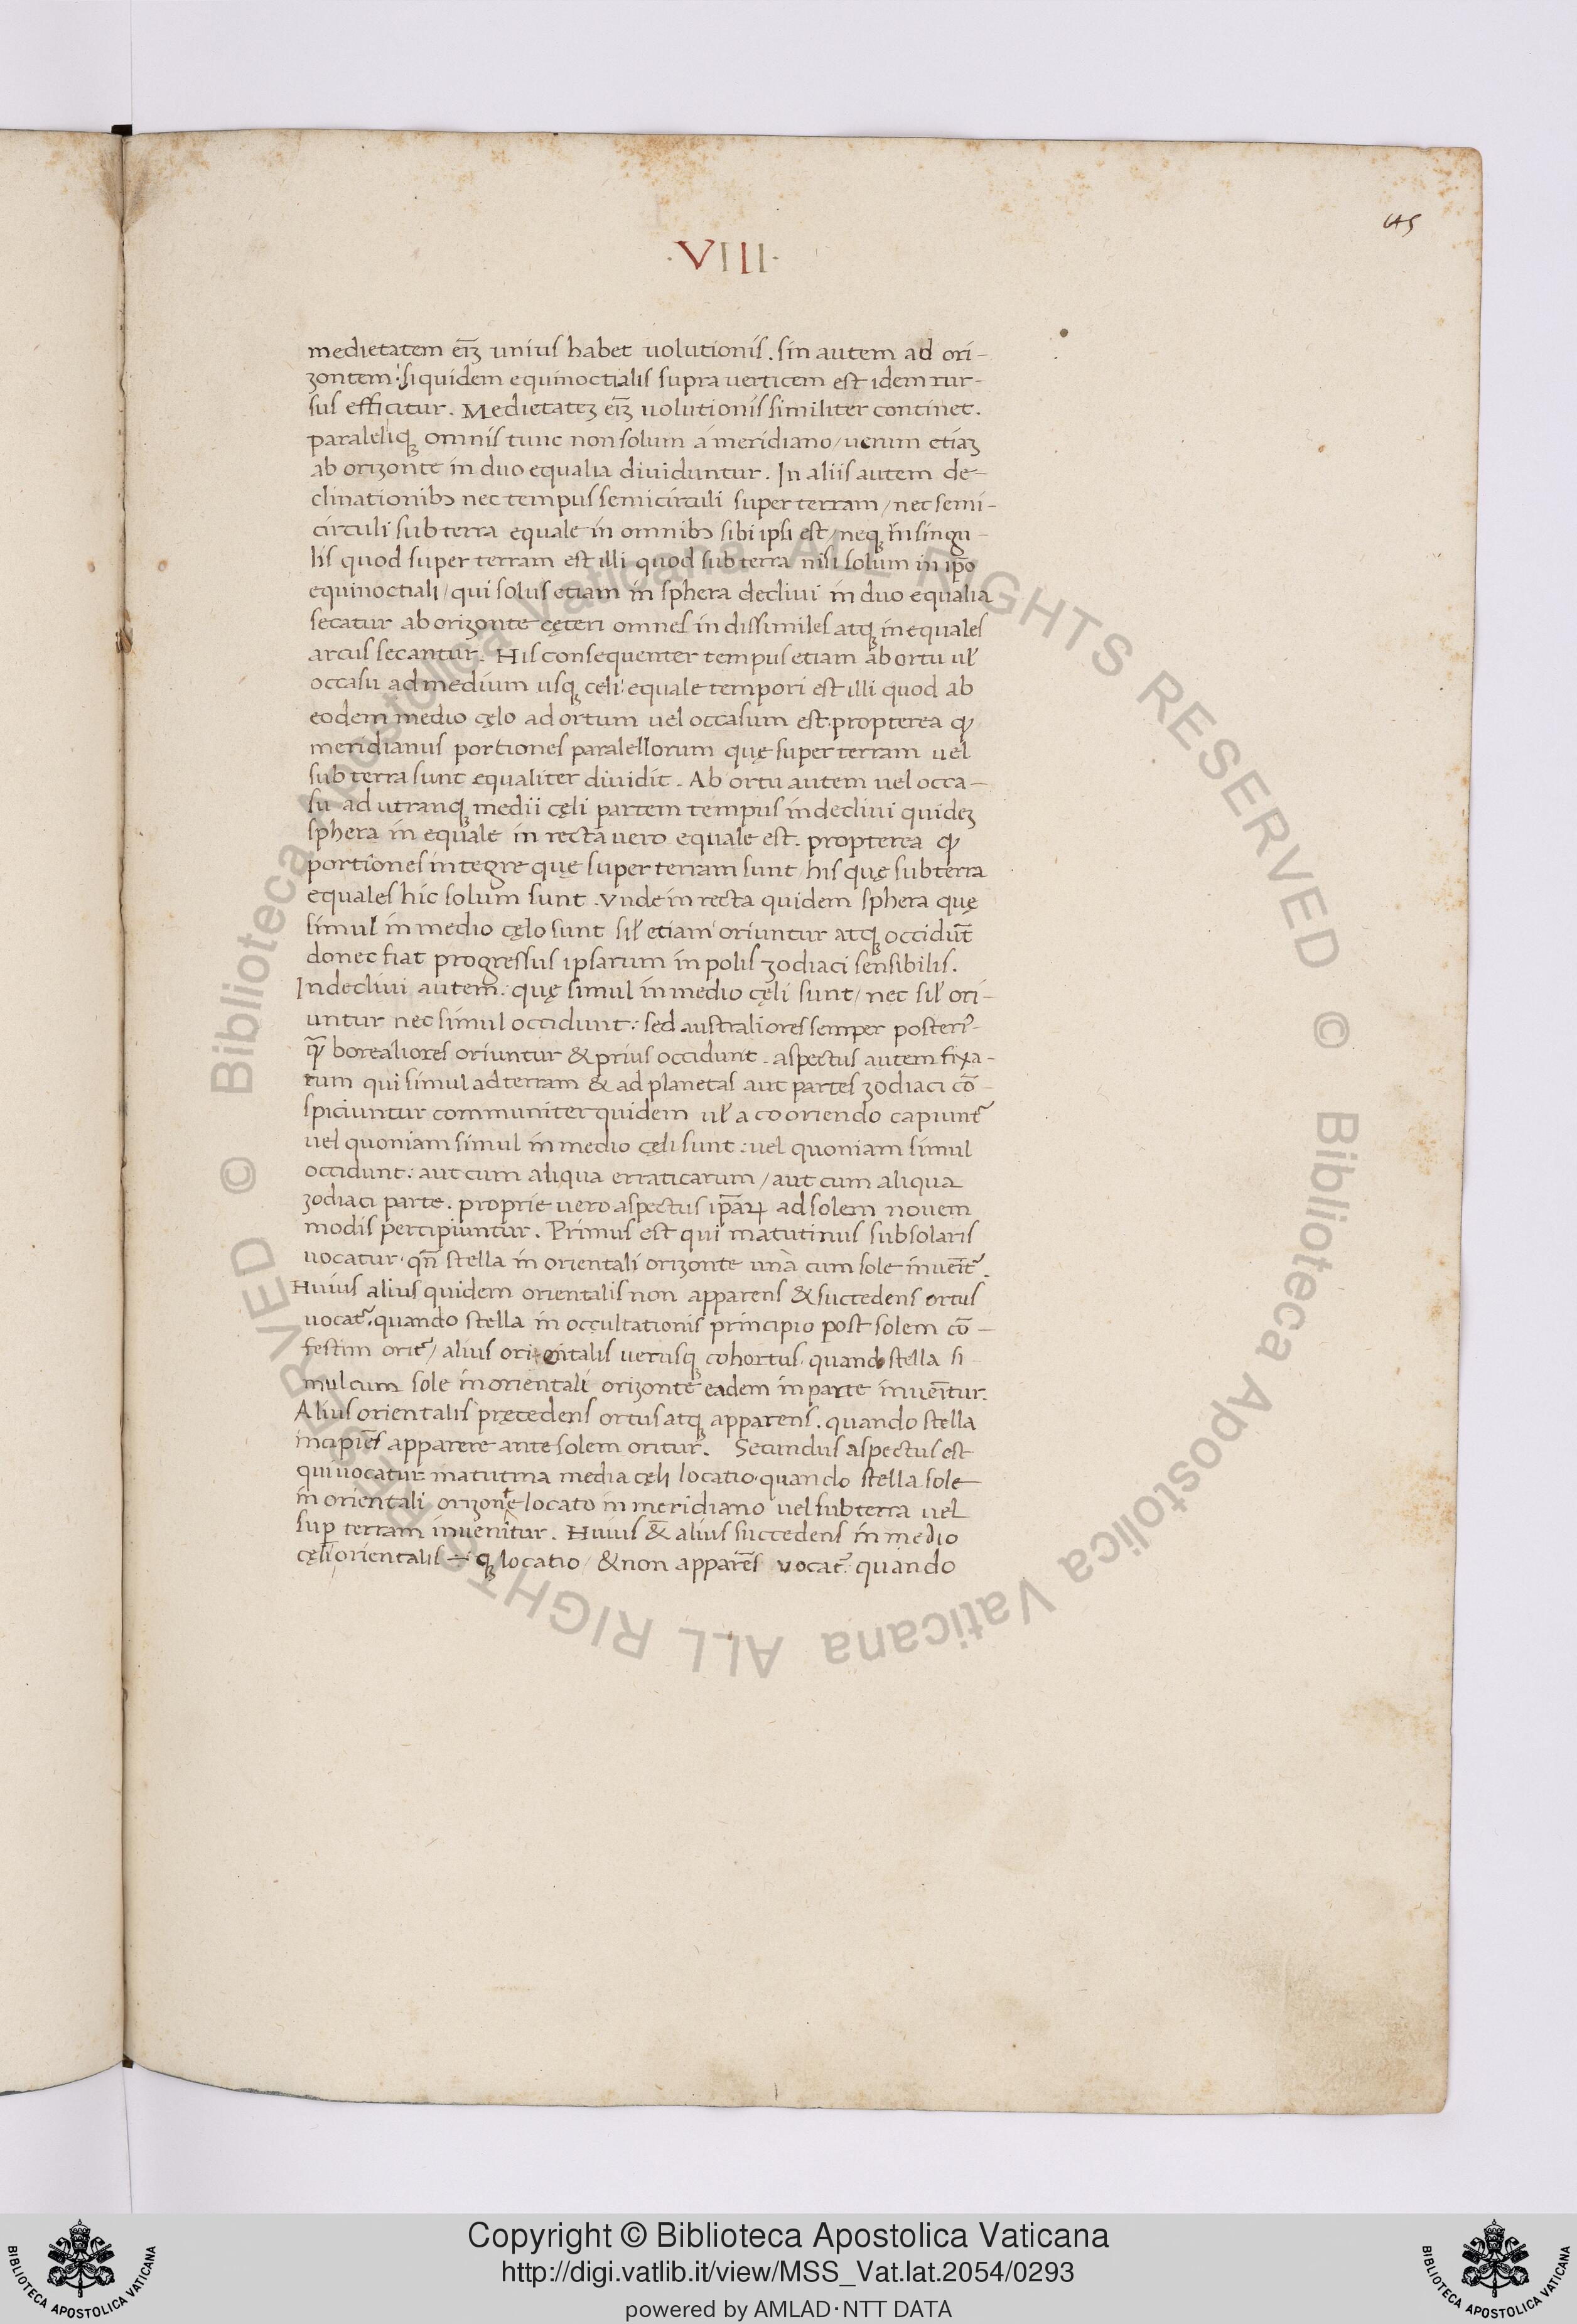 145
·VIIII·
medietatem eīꝫ unius habet uolutionis. sin autem ad ori-
zontem: siquidem equinoctialis supra uerticem est idem rur-
sus efficitur. Medietateꝫ eīꝫ uolutionis similiter continet.
paraleliqꝫ omnis tunc non solum a meridiano / uerum etiaꝫ
ab orizonte in duo equalia diuiduntur. In aliis autem de-
clinationibꝫ nec tempus semicirculi super terram / nec semi-
circuli sub terra equale in omnibꝫ sibi ipsi est / neqꝫ in singu-
lis quod super terram est illi quod sub terra nisi solum in ip̄o
equinoctiali / qui solus etiam in sphera decliui in duo equalia
secatur ab orizonte cęteri omnes in dissimiles atqꝫ inequales
arcus secantur. His consequenter tempus etiam ab ortu ul̛
occasu ad medium usqꝫ celi: equale tempori est illi quod ab
eodem medio cęlo ad ortum uel occasum est. propterea ꝙ
meridianus portiones paralellorum quę super terram uel
sub terra sunt equaliter diuidit. Ab ortu autem uel occa-
su ad utranqꝫ medii cęli partem tempus in decliui quideꝫ
sphera in equale in recta uero equale est. propterea ꝙ
portiones integre quę super terram sunt / his quę sub terra
equales hic solum sunt. Vnde in recta quidem sphera quę
simul in medio cęlo sunt sil̛ etiam oriuntur atqꝫ occidūt
donec fiat progressus ipsarum in polis zodiaci sensibilis.
In decliui autem: quę simul in medio cęli sunt / nec sil̛ ori-
untur nec simul occidunt: sed australiores semper posteriꝰ
ꝙ̄ borealiores oriuntur & prius occidunt. aspectus autem fixa-
rum qui simul ad terram & ad planetas aut partes zodiaci cō-
spiciuntur communiter quidem ul̛ a cooriendo capiunt᷑
uel quoniam simul in medio cęli sunt: uel quoniam simul
occidunt: aut cum aliqua erraticarum / aut cum aliqua
zodiaci parte. proprie uero aspectus ip̄aꝝ ad solem nouem
modis percipiuntur. Primus est qui matutinus subsolaris
uocatur. qn̄ stella in orientali orizonte una cum sole inueīt᷑.
Huius alius quidem orientalis non apparens & succedens ortus
uocat᷑. quando stella in occultationis principio post solem cō-
festim orit᷑ / alius orientalis uerusqꝫ cohortus. quando stella si-
mul cum sole in orientali orizonte eadem in parte inueītur.
Alius orientalis pręcedens ortus atqꝫ apparens. quando stella
incipiēs apparere ante solem oritur. Secundus aspectus est
qui uocatur matutina media cęli locatio. quando stella sole
in orientali orizonte locato in meridiano uel sub terra uel
suꝑ terram inuenitur. Huius &̄ alius succedens in medio
cęli orientalis qꝫ locatio / & non apparēs uocat᷑. quando
© Biblioteca Apostolica Vaticana ALL RIGHTS RESERVED © Biblioteca Apostolica Vaticana ALL RIGHTS RESERVED
Copyright © Biblioteca Apostolica Vaticana
http://digi.vatlib.it/view/MSS_Vat.lat.2054/0293
powered by AMLAD·NTT DATA
BIBLIOTECA APOSTOLICA VATICANA
BIBLIOTECA APOSTOLICA VATICANA